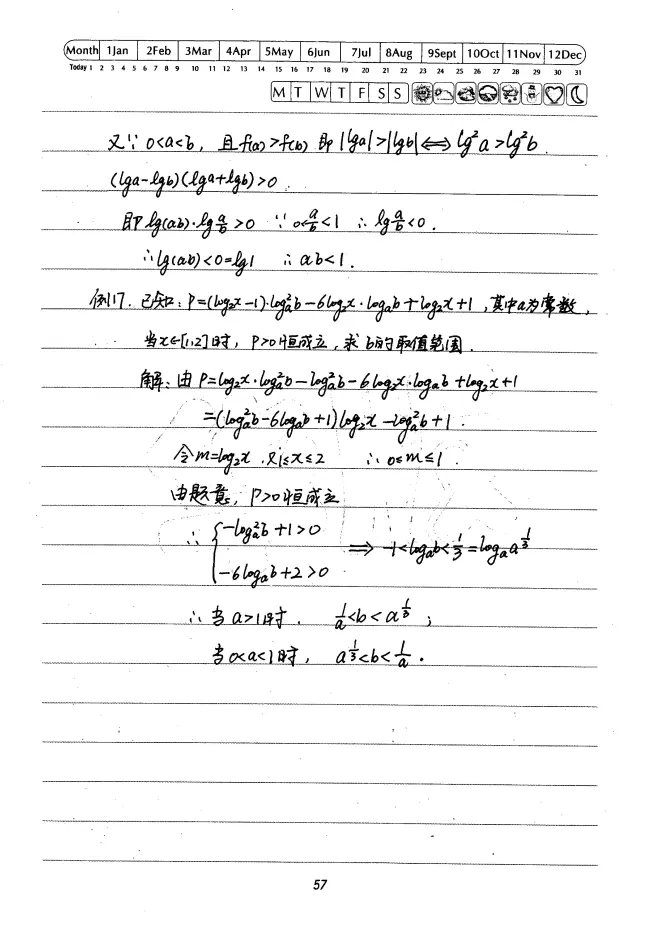 Month 1Jan 2Feb 3Mar 4Apr 5May 6Jun 7Jul 8Aug 9Sept 10Oct 11Nov 12Dec
Today 1 2 3 4 5 6 7 8 9 10 11 12 13 14 15 16 17 18 19 20 21 22 23 24 25 26 27 28 29 30 31
M T W T F S S
又∵ 0<a<b, 且f(a)>f(b) 即 |lga|>|lgb| ⟺ lg²a>lg²b
(lga-lgb)(lga+lgb)>0
即lg(ab)·lg a/b >0 ∵ 0<a/b<1 ∴ lg a/b <0.
∴lg(ab)<0=lg1 ∴ ab<1.
例17. 已知: P=(log₂x-1)·logₐ²b-6log₂x·logₐb+log₂x+1, 其中a为常数,
当x∈[1,2]时, P>0恒成立, 求b的取值范围.
解: 由P=log₂x·logₐ²b-logₐ²b-6log₂x·logₐb+log₂x+1
=(logₐ²b-6logₐb+1)log₂x-logₐ²b+1.
令m=log₂x. 又1≤x≤2 ∴ 0≤m≤1.
由题意, P>0恒成立
∴ { -logₐ²b+1>0
⟹ -1<logₐb<1/3=logₐa^(1/3)
-6logₐb+2>0
∴当a>1时. 1/a<b<a^(1/3);
当0<a<1时, a^(1/3)<b<1/a.
57